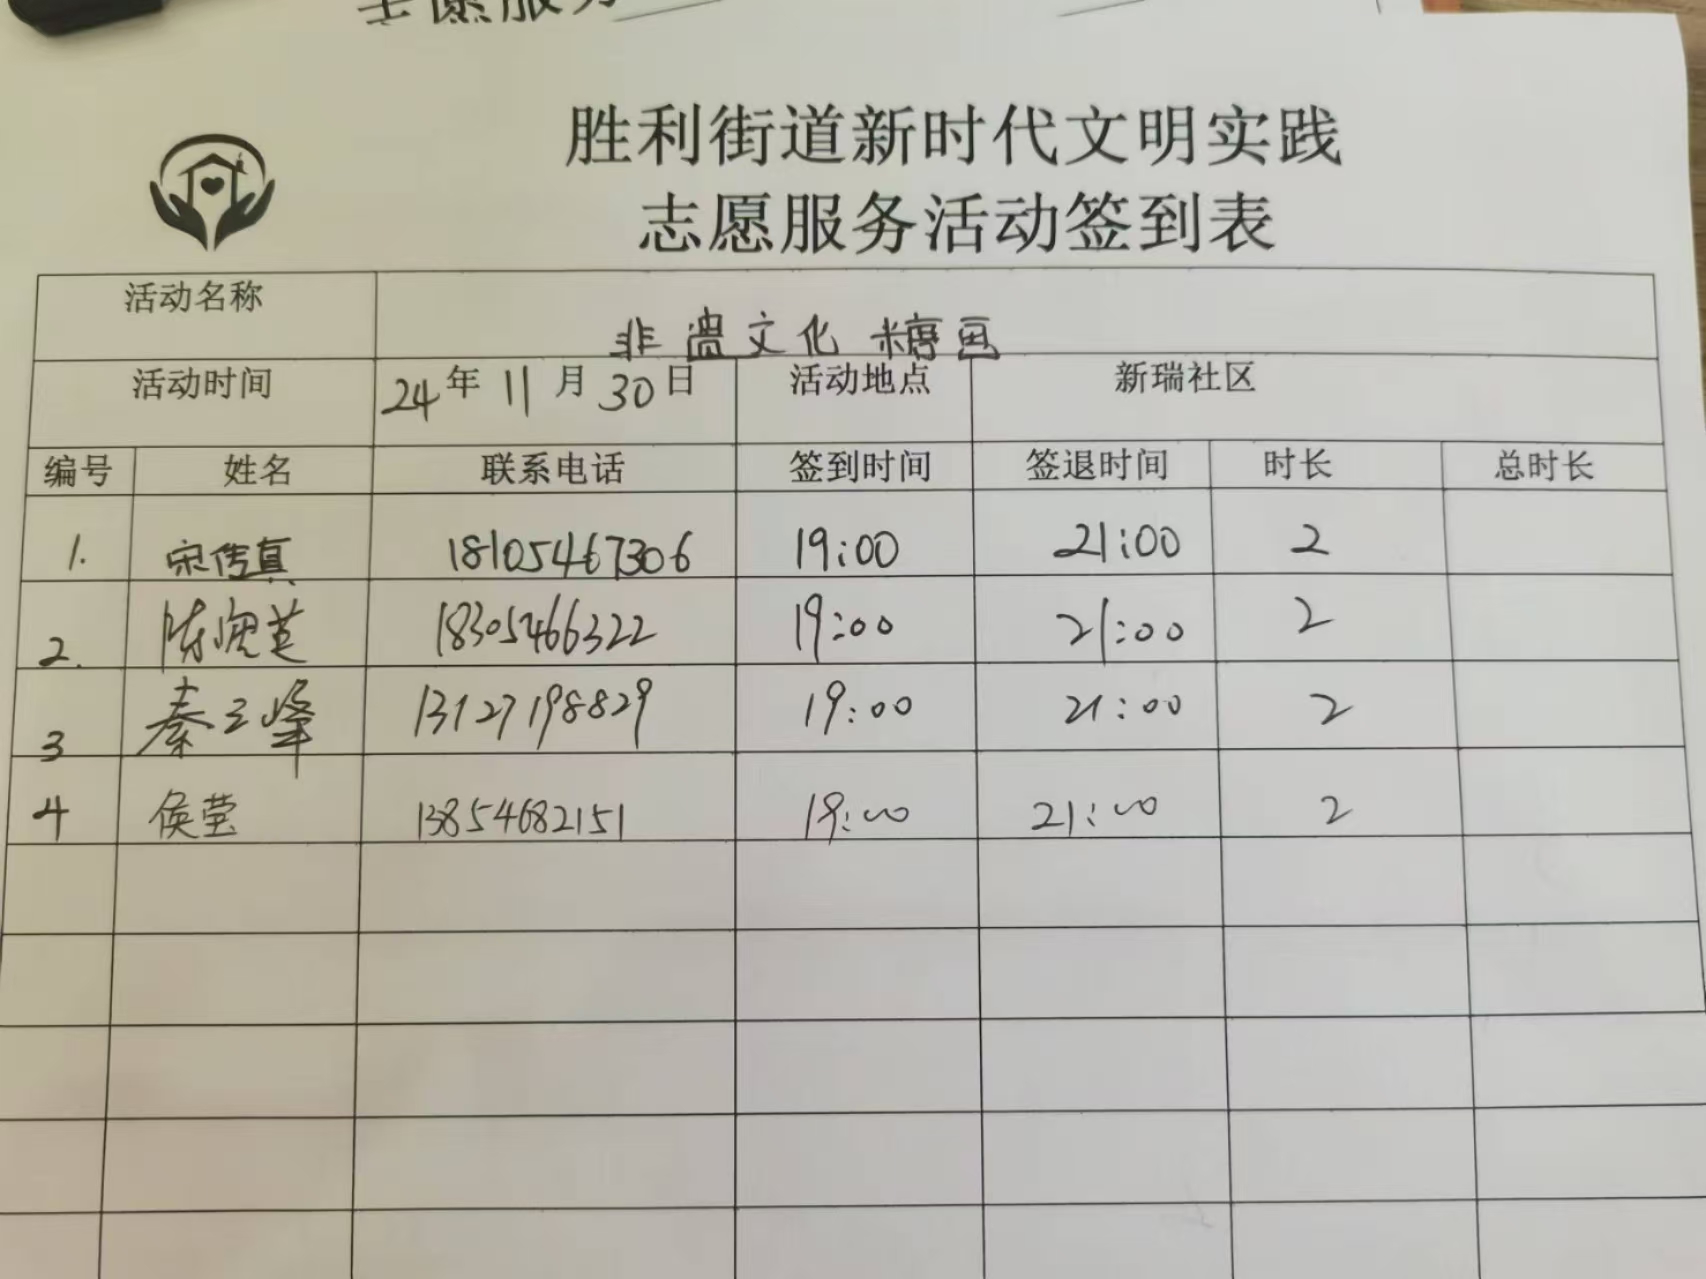 志愿服务
胜利街道新时代文明实践
志愿服务活动签到表
活动名称 非遗文化 糖画
活动时间 24年11月30日 活动地点 新瑞社区
编号 姓名 联系电话 签到时间 签退时间 时长 总时长
1. 宋传真 18105467306 19:00 21:00 2
2. 18305466322 19:00 21:00 2
3 秦玉峰 13127198829 19:00 21:00 2
4 侯莹 13854682151 19:00 21:00 2